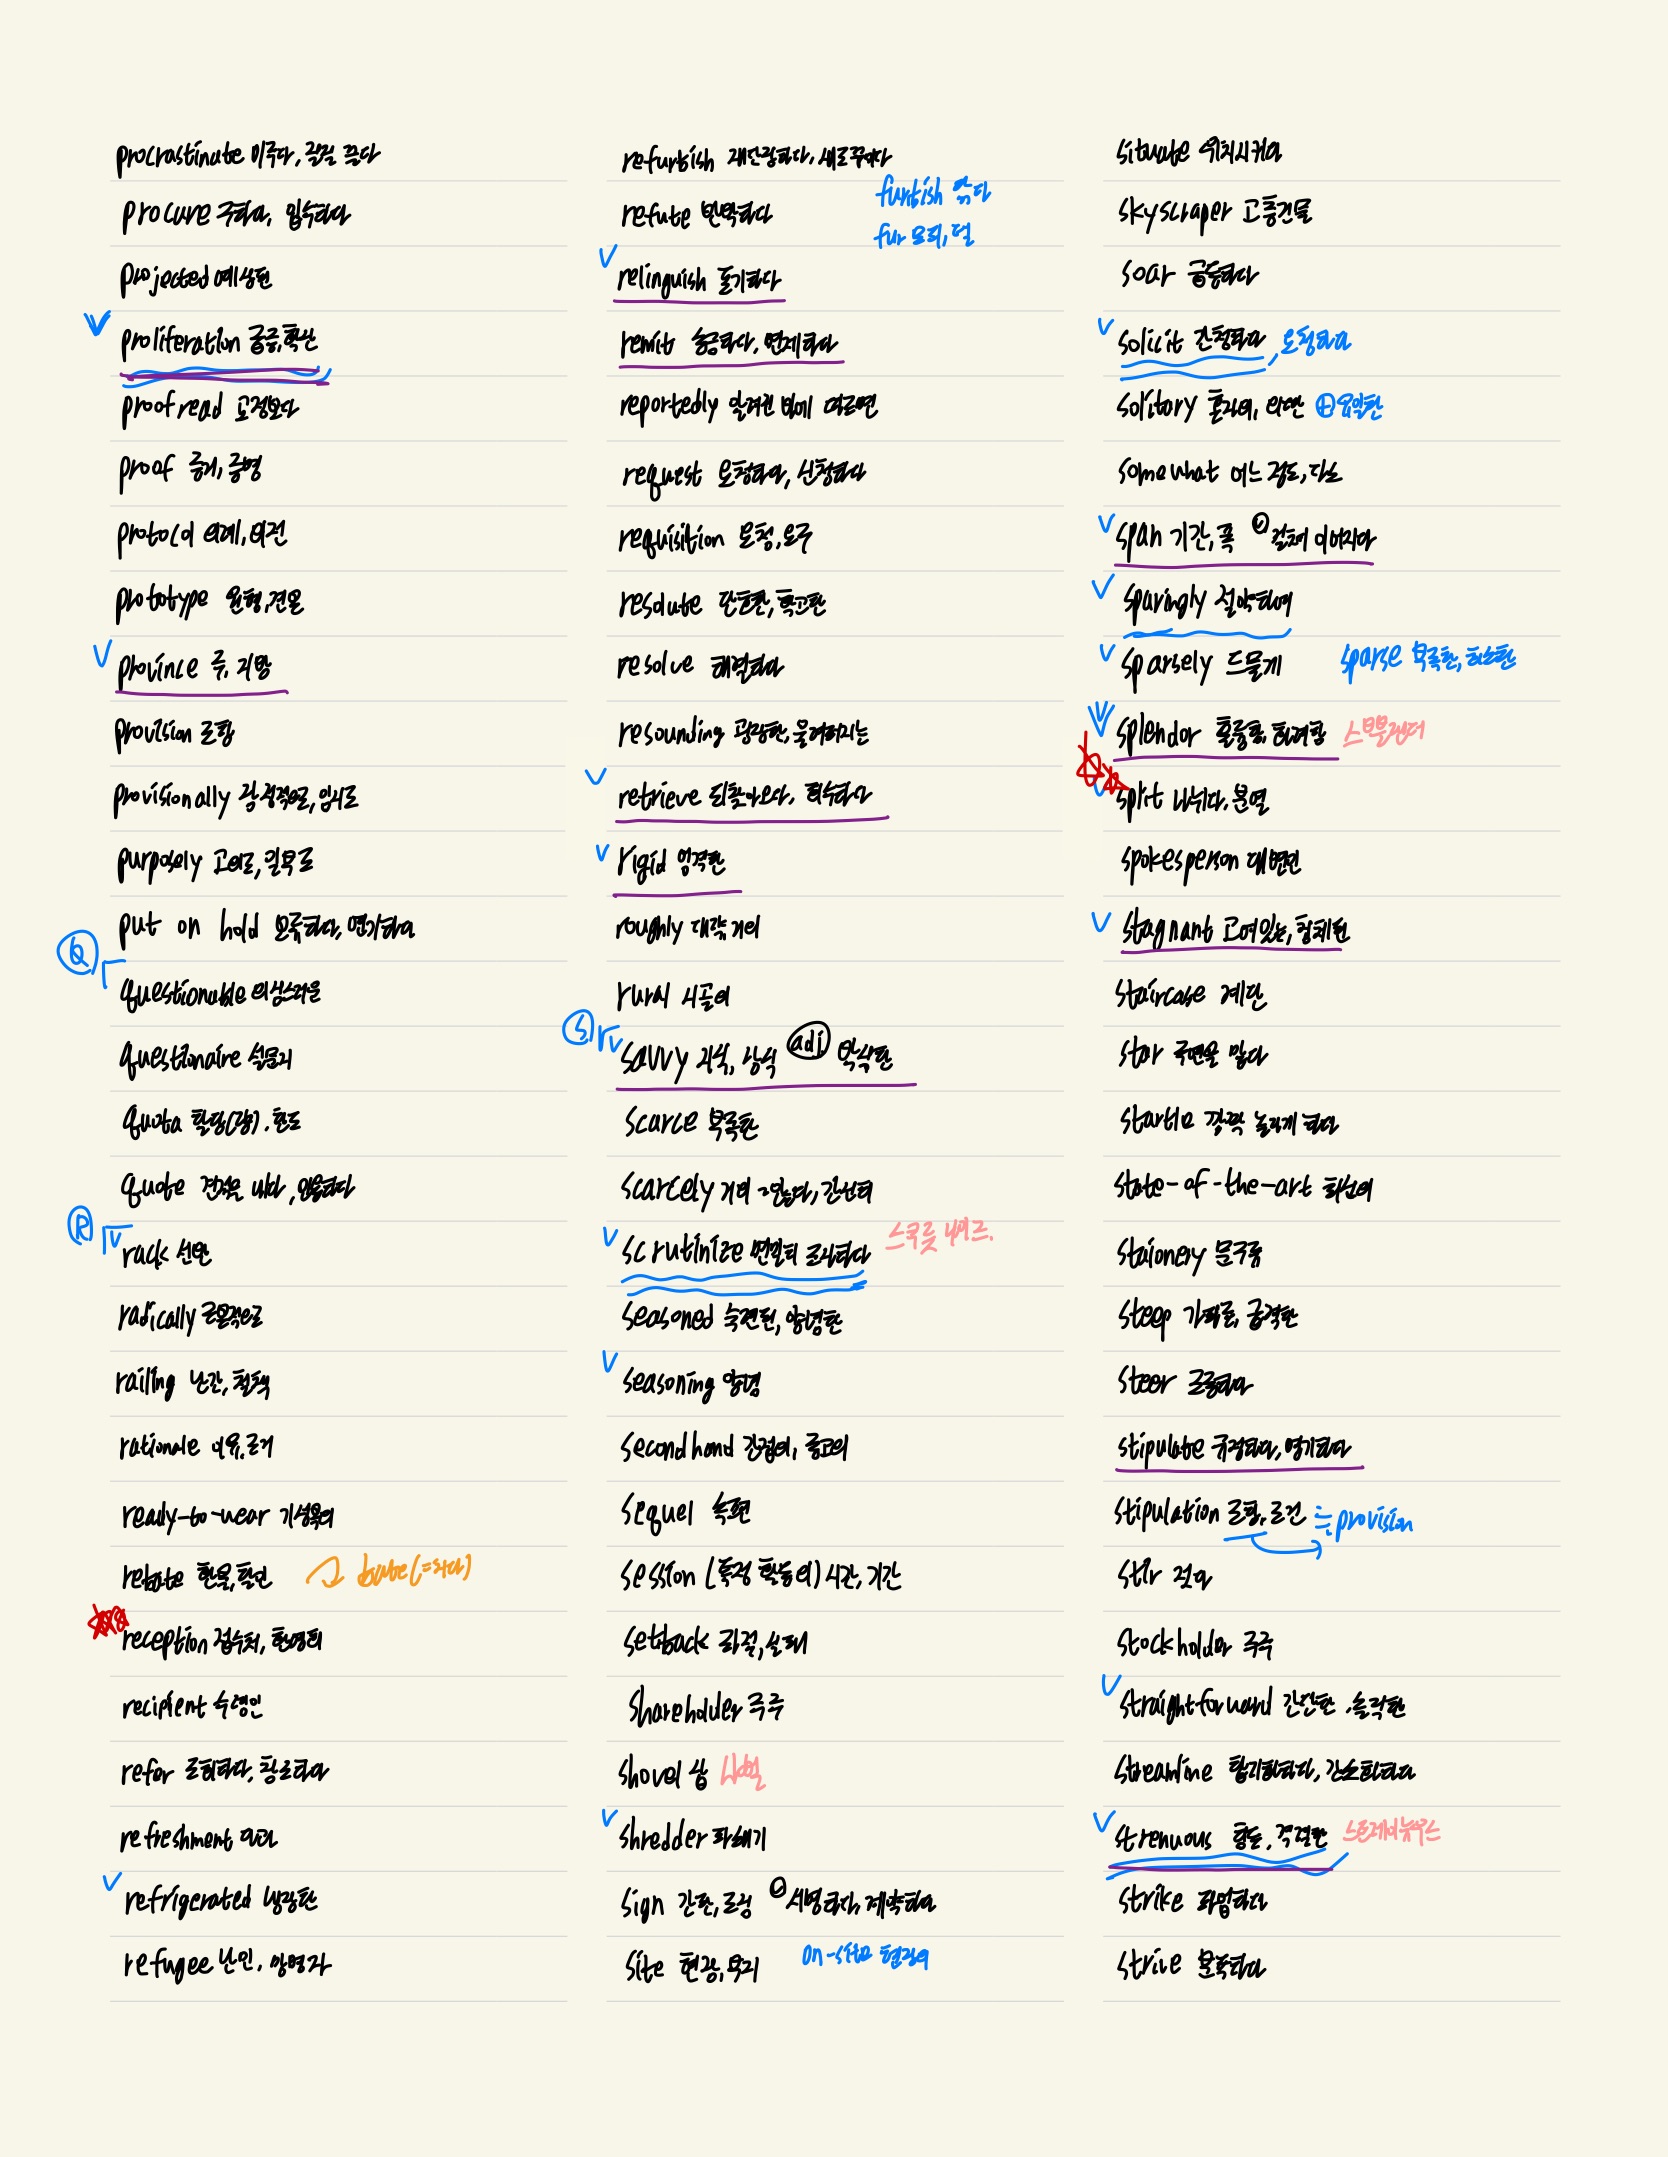 procrastinate 미루다, 질질 끌다
procure 구하다, 입수하다
projected 예상된
proliferation 급증, 확산
proofread 교정보다
proof 증거, 증명
protocol 의례, 의전
prototype 원형, 견본
province 주, 지방
provision 조항
provisionally 잠정적으로, 임시로
purposely 고의로, 일부로
put on hold 보류하다, 연기하다
Q
questionable 의심스러운
questionaire 설문지
quota 할당(량), 한도
quote 견적을 내다, 인용하다
R
rack 선반
radically 근본적으로
railing 난간, 철책
rationale 이유, 근거
ready-to-wear 기성복의
rebate 환불, 할인 bate(=치다)
reception 접수처, 환영회
recipient 수령인
refer 조회하다, 참조하다
refreshment 다과
refrigerated 냉장한
refugee 난민, 망명자
refurbish 재단장하다, 새로꾸미다
furbish 닦다
refute 반박하다
fur 모피, 털
relinguish 포기하다
remit 송금하다, 면제하다
reportedly 알려진 바에 따르면
request 요청하다, 신청하다
requisition 요청, 요구
resolute 단호한, 확고한
resolve 해결하다
resounding 굉장한, 울려퍼지는
retrieve 되찾아오다, 회수하다
rigid 엄격한
roughly 대략, 거의
rural 시골의
S
savvy 지식, 상식 adj 박식한
scarce 부족한
scarcely 거의 ~않다, 간신히
scrutinize 면밀히 조사하다 스크룻 니이즈.
seasoned 숙련된, 양념한
seasoning 양념
secondhand 간접의, 중고의
sequel 속편
session (특정 활동의) 시간, 기간
setback 좌절, 실패
shareholder 주주
shovel 삽 샤벨
shredder 파쇄기
sign 간판, 조짐 ⓥ서명하다, 계약하다
site 현장, 부지 on-site 현장의
situate 위치시키다
skyscraper 고층건물
soar 급등하다
solicit 간청하다, 요청하다
solitary 혼자의, 외딴 ⊕유일한
somewhat 어느 정도, 다소
span 기간, 폭 ⓥ걸쳐 이어지다
sparingly 절약하여
sparsely 드물게 sparse 부족한, 희소한
splendor 훌륭함, 화려함 스쁠랜더
split 나뉘다, 분열
spokesperson 대변인
stagnant 고여있는, 침체된
staircase 계단
star 주연을 맡다
startle 깜짝 놀라게 하다
state-of-the-art 최신의
staionery 문구류
steep 가파른, 급격한
steer 조종하다
stipulate 규정하다, 명기하다
stipulation 조항, 조건 ≒provision
stir 젓다
stockholder 주주
straightforward 간단한, 솔직한
streamline 합리화하다, 간소화하다
strenuous 힘든, 격렬한 스트레이뉴우스
strike 파업하다
strive 분투하다